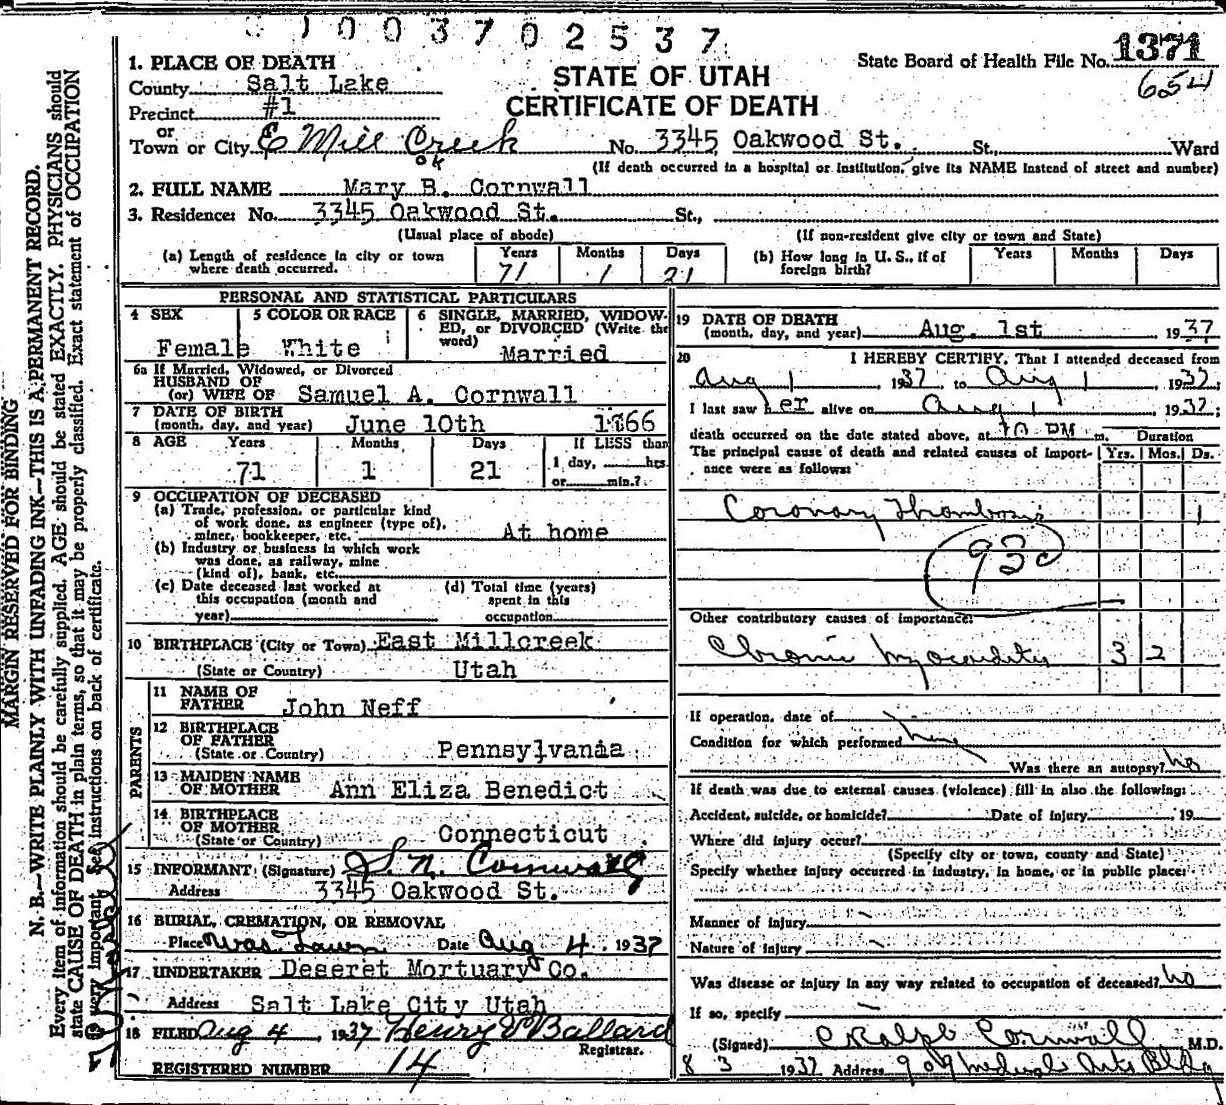 1003702537
1. PLACE OF DEATH
STATE OF UTAH
CERTIFICATE OF DEATH
State Board of Health File No. 1371
654
County Salt Lake
Precinct #1
or
Town or City E Mill Creek No. 3345 Oakwood St. St., Ward
ok
(If death occurred in a hospital or institution, give its NAME instead of street and number)
2. FULL NAME Mary B. Cornwall
3. Residence: No. 3345 Oakwood St. St.,
(Usual place of abode) (If non-resident give city or town and State)
(a) Length of residence in city or town where death occurred. Years 71 Months 1 Days 21
(b) How long in U. S., if of foreign birth? Years Months Days
PERSONAL AND STATISTICAL PARTICULARS
4 SEX Female
5 COLOR OR RACE White
6 SINGLE, MARRIED, WIDOWED, or DIVORCED (Write the word) Married
6a If Married, Widowed, or Divorced
HUSBAND OF
(or) WIFE OF Samuel A. Cornwall
7 DATE OF BIRTH
(month, day, and year) June 10th 1866
8 AGE Years Months Days If LESS than
71 1 21 1 day, hrs
or min.?
9 OCCUPATION OF DECEASED
(a) Trade, profession, or particular kind
of work done, as engineer (type of),
miner, bookkeeper, etc. At home
(b) Industry or business in which work
was done, as railway, mine
(kind of), bank, etc.
(c) Date deceased last worked at
this occupation (month and
year)
(d) Total time (years)
spent in this
occupation.
10 BIRTHPLACE (City or Town) East Millcreek
(State or Country) Utah
PARENTS
11 NAME OF
FATHER John Neff
12 BIRTHPLACE
OF FATHER
(State or Country) Pennsylvania
13 MAIDEN NAME
OF MOTHER Ann Eliza Benedict
14 BIRTHPLACE
OF MOTHER
(State or Country) Connecticut
15 INFORMANT (Signature) S. N. Cornwall
Address 3345 Oakwood St.
16 BURIAL, CREMATION, OR REMOVAL
Place Was. Lawn Date Aug 4, 1937
17 UNDERTAKER Deseret Mortuary Co.
Address Salt Lake City Utah
18 FILED Aug 4, 1937 Henry E Ballard
Registrar.
REGISTERED NUMBER 14
19 DATE OF DEATH
(month, day, and year) Aug. 1st 1937
20 I HEREBY CERTIFY, That I attended deceased from
Aug 1 1937 to Aug 1 1937
I last saw her alive on Aug 1 1937;
death occurred on the date stated above, at 10 PM m. Duration
The principal cause of death and related causes of import- Yrs. Mos. Ds.
ance were as follows:
Coronary Thrombosis 1
93c
Other contributory causes of importance:
Chronic Myocarditis 3 2
If operation, date of
Condition for which performed
Was there an autopsy? no
If death was due to external causes (violence) fill in also the following:
Accident, suicide, or homicide? Date of Injury 19
Where did injury occur?
(Specify city or town, county and State)
Specify whether injury occurred in industry, in home, or in public place:
Manner of injury
Nature of injury
Was disease or injury in any way related to occupation of deceased? no
If so, specify
(Signed) C Ralph Cornwall M.D.
8 3 1937 Address 909 Medical Arts Bldg
MARGIN RESERVED FOR BINDING
N. B.—WRITE PLAINLY WITH UNFADING INK—THIS IS A PERMANENT RECORD.
Every item of information should be carefully supplied. AGE should be stated EXACTLY. PHYSICIANS should
state CAUSE OF DEATH in plain terms, so that it may be properly classified. Exact statement of OCCUPATION
is very important. See instructions on back of certificate.